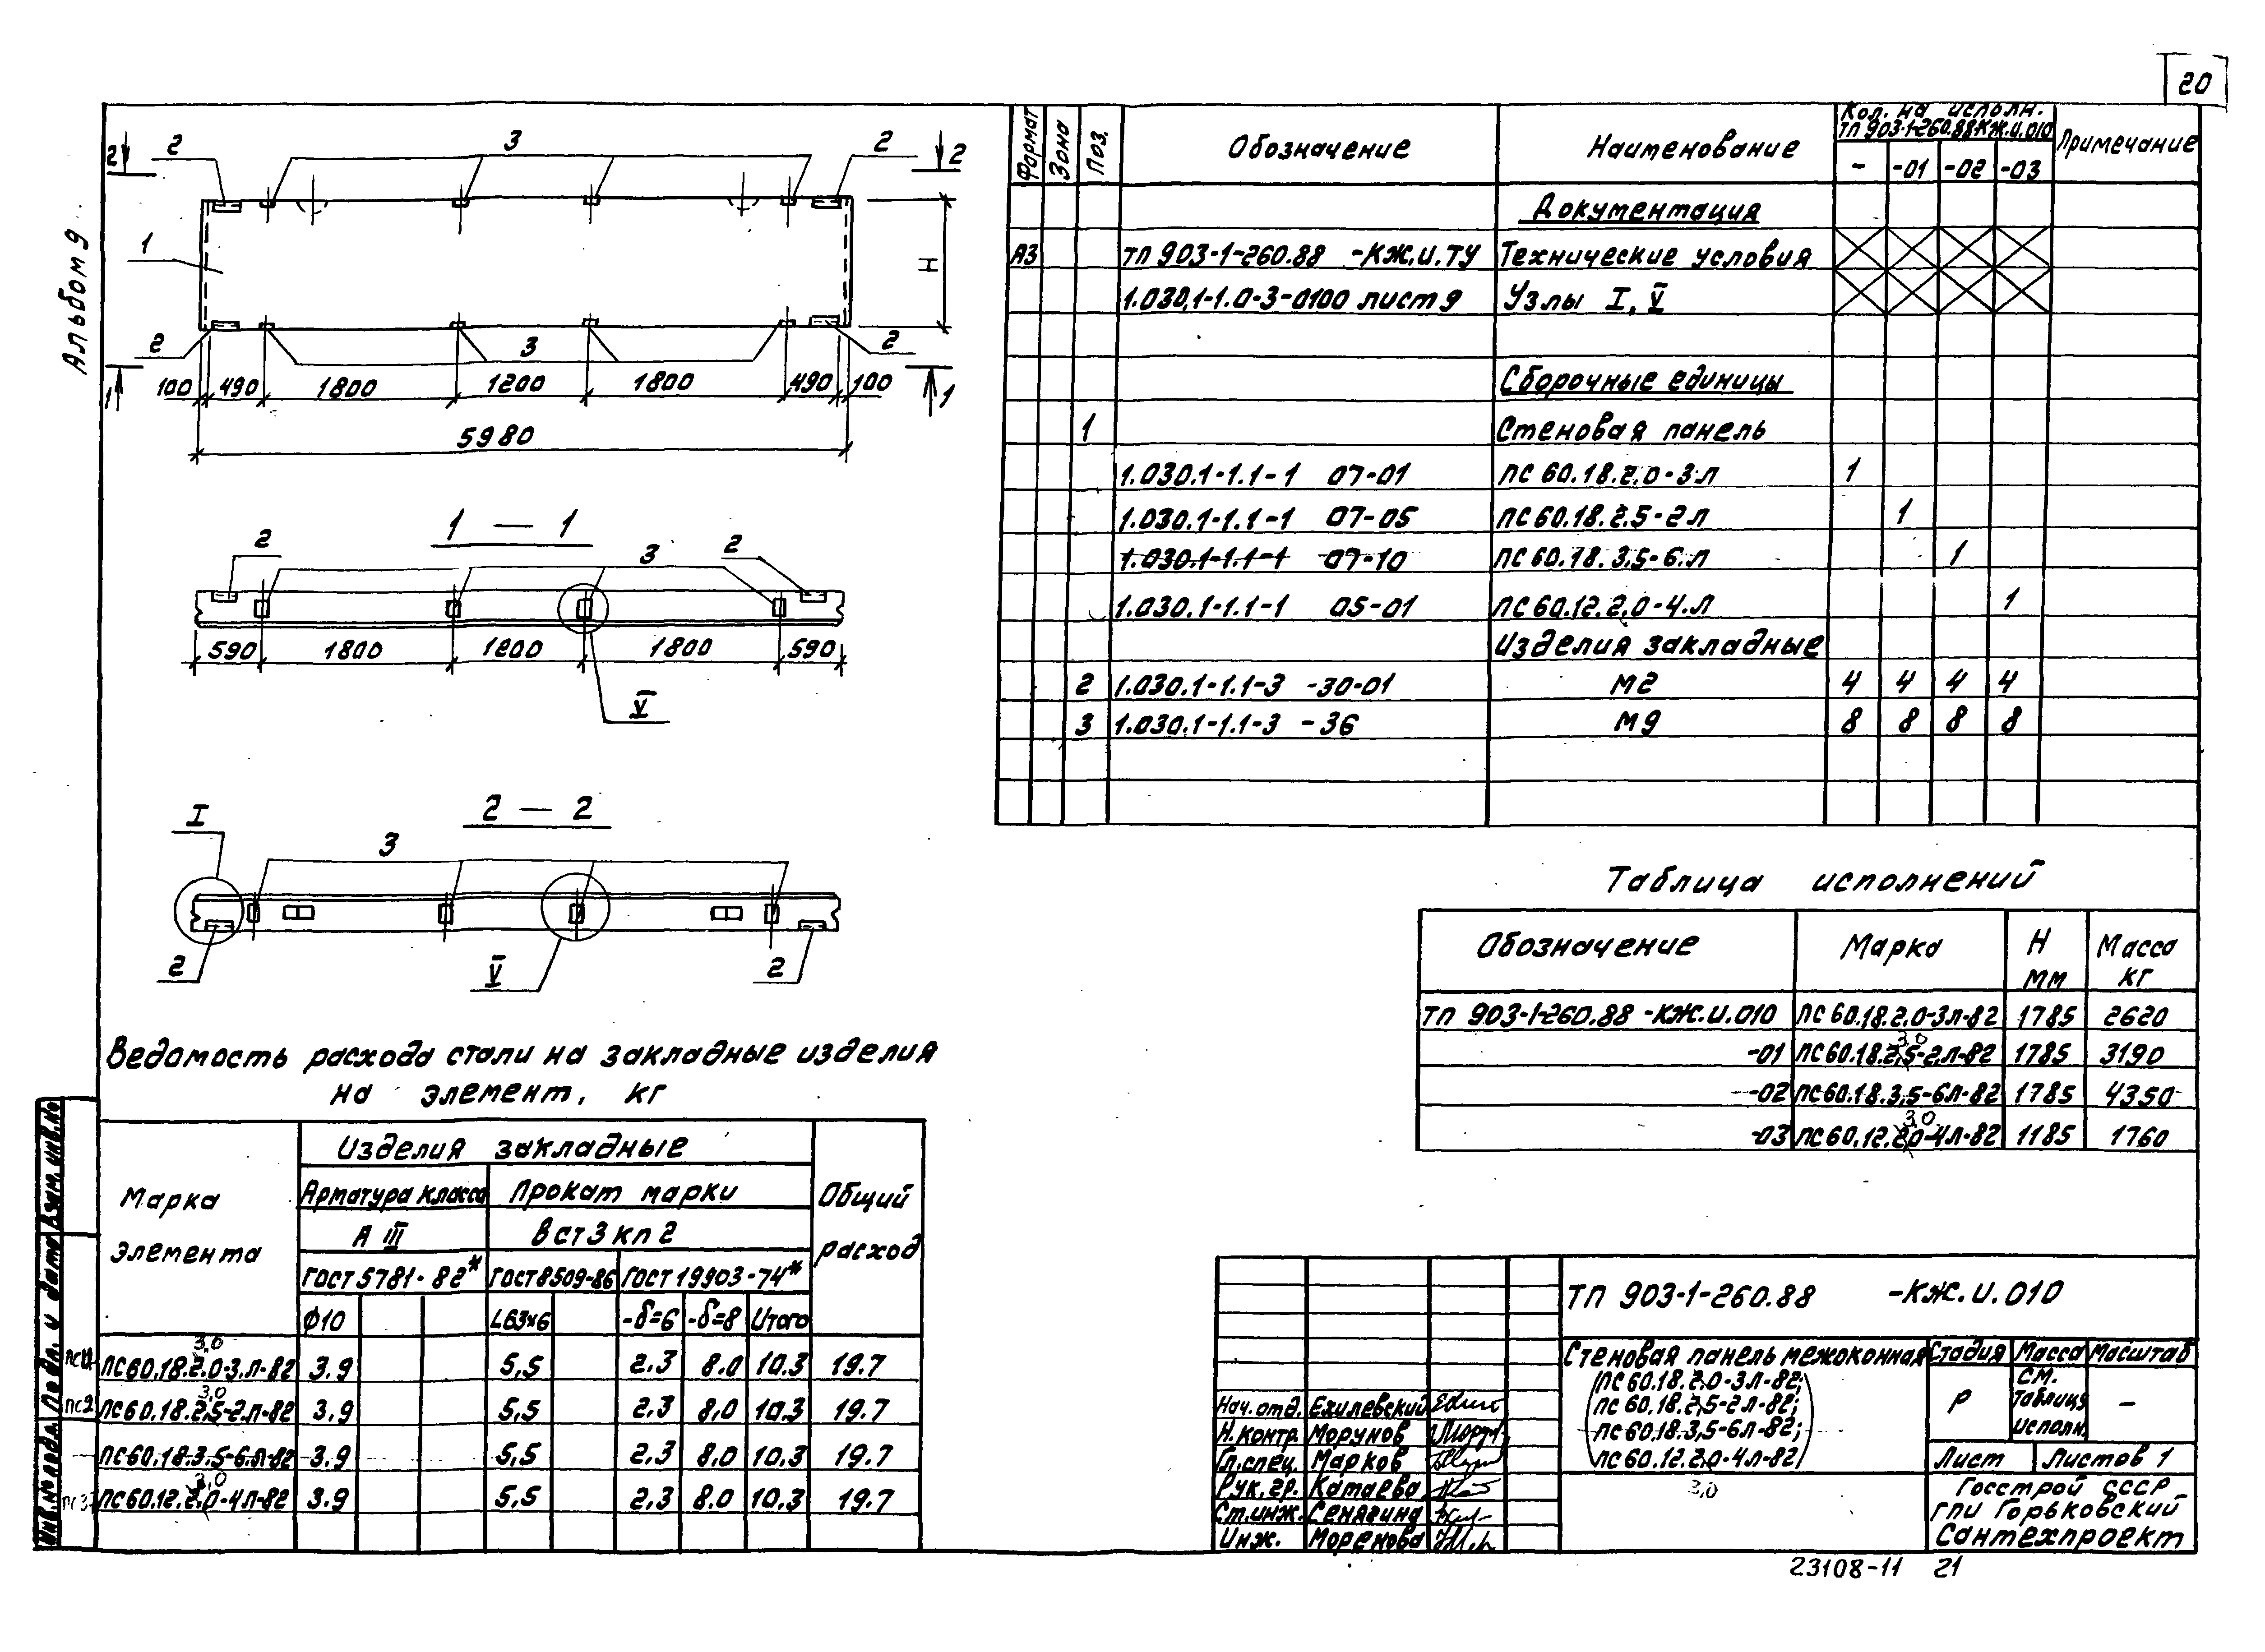 20
Альбом 9
2 2 3 2 2
1
Н
2 3 2
1 100 490 1800 1200 1800 490 100 1
5980
1 — 1
2 3 2
590 1800 1200 1800 590
V
2 — 2
I
3
2 V 2
Формат Зона Поз. Обозначение Наименование Кол. на исполн. ТП 903-1-260.88-КЖ.И.010 Примечание
- -01 -02 -03
Документация
А3 ТП 903-1-260.88 -КЖ.И.ТУ Технические условия
1.030.1-1.0-3-0100 лист 9 Узлы I, V
Сборочные единицы
1 Стеновая панель
1.030.1-1.1-1 07-01 ПС 60.18.2,0-3.л 1
1.030.1-1.1-1 07-05 ПС 60.18.2,5-2л 1
1.030.1-1.1-1 07-10 ПС 60.18.3,5-6.л 1
1.030.1-1.1-1 05-01 ПС 60.12.2,0-4.л 1
Изделия закладные
2 1.030.1-1.1-3 -30-01 М2 4 4 4 4
3 1.030.1-1.1-3 -36 М9 8 8 8 8
Таблица исполнений
Обозначение Марка Н мм Масса кг
ТП 903-1-260.88 -КЖ.И.010 ПС 60.18.2,0-3л-82 1785 2620
3,0
-01 ПС 60.18.2,5-2л-82 1785 3190
-02 ПС 60.18.3,5-6л-82 1785 4350
3,0
-03 ПС 60.12.2,0-4л-82 1185 1760
Ведомость расхода стали на закладные изделия
на элемент, кг
Марка элемента Изделия закладные Общий расход
Арматура класса Прокат марки
А III Вст3кп2
ГОСТ 5781-82* ГОСТ 8509-86 ГОСТ 19903-74*
Ф10 L63×6 -δ=6 -δ=8 Итого
3,0
ПС 60.18.2,0-3.л-82 3.9 5,5 2.3 8.0 10.3 19.7
3,0
пс2 ПС 60.18.2,5-2.л-82 3.9 5,5 2.3 8,0 10.3 19.7
ПС 60.18.3,5-6.л-82 3.9 5,5 2.3 8.0 10.3 19.7
3,0
ПС 60.12.2,0-4л-82 3.9 5,5 2.3 8.0 10.3 19.7
Инв.№ подл. Подп. и дата Взам. инв.№
ТП 903-1-260.88 -КЖ.И.010
Стеновая панель межоконная
(ПС 60.18.2,0-3л-82;
ПС 60.18.2,5-2л-82;
ПС 60.18.3,5-6л-82;
ПС 60.12.2,0-4л-82)
3,0
Стадия Масса Масштаб
Р см. таблицу исполн. —
Лист Листов 1
Госстрой СССР
ГПИ Горьковский
Сантехпроект
Нач. отд. Ехилевский
Н.контр. Морунов
Гл.спец. Марков
Рук.гр. Катаева
Ст.инж. Сенягина
Инж. Моренова
23108-11 21